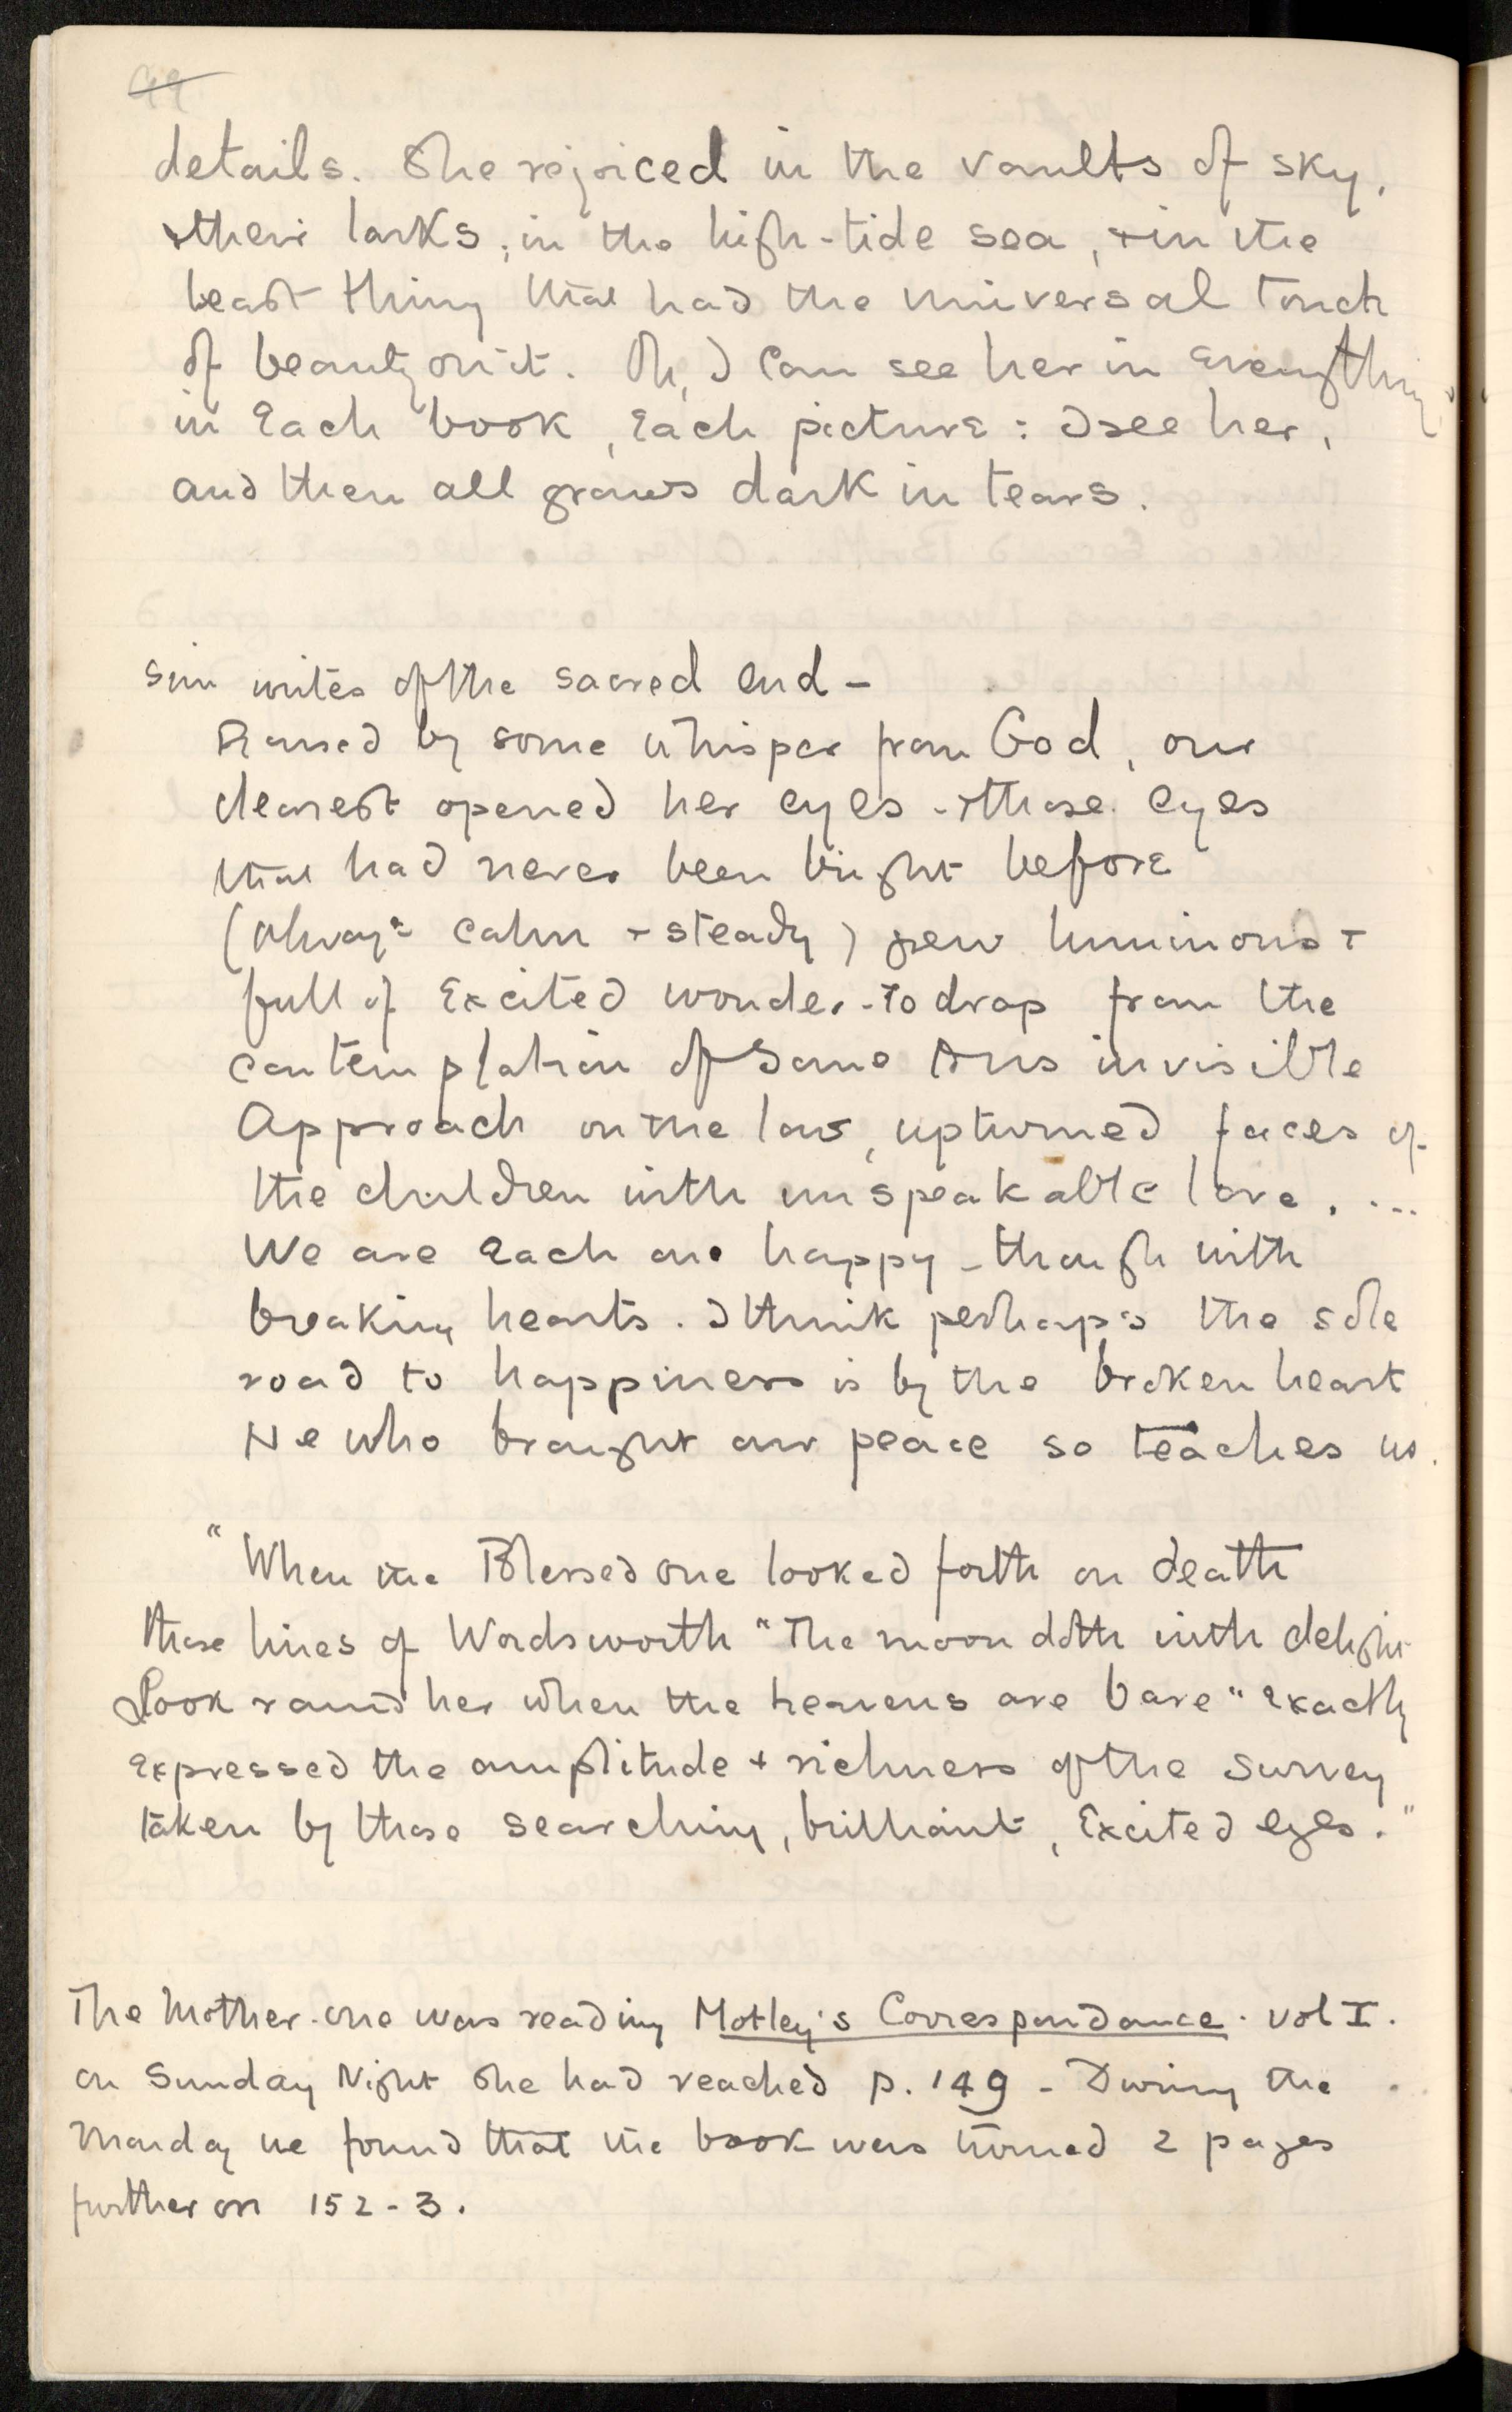 49
details. She rejoiced in the vaults of sky,
+ their larks; in the high-tide sea, + in the
least thing that had the universal touch
of beauty on it. Oh, I can see her in everything,
in each book, each picture: I see her,
and then all grows dark in tears.
Sim writes of the sacred end –
Roused by some whisper from God, our
dearest opened her eyes - + those eyes
that had never been bright before
(always calm + steady) grew luminous +
full of excited wonder - to drop from the
contemplation of some invisible
Approach on the low, upturned faces of
the children with unspeakable love. ...
We are each one happy - though with
breaking hearts. I think perhaps the sole
road to happiness is by the broken heart
He who brought our peace so teaches us.
"When the Blessed one looked forth on death
those lines of Wordsworth "The moon doth with delight
Look round her when the heavens are bare" exactly
expressed the amplitude + richness of the survey
taken by those searching, brilliant, excited eyes."
The Mother-one was reading Motley's Correspondance. Vol I.
on Sunday Night She had reached p. 149 - During the
Monday we found that the book was turned 2 pages
further on 152-3.